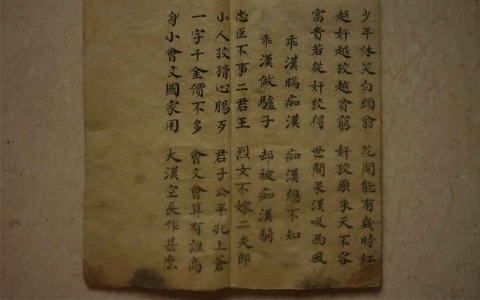 少年休笑白頭翁 花開能有幾時紅
越奸越狡越貧窮 奸狡原來天不容
富貴若從奸狡得 世間呆漢吸西風
乖漢瞞痴漢 痴漢總不知
乖漢做驢子 却被痴漢騎
忠臣不事二君王 烈女不嫁二夫郎
小人狡猾心腸歹 君子公平托上蒼
一字千金價不多 會文會算有誰高
身小會文國家用 大漢空長作甚麼